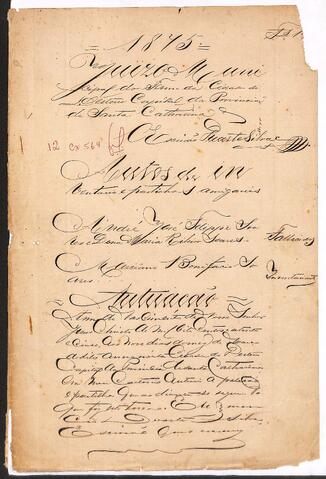 1875
Fl 1
Juizo Muni
cipal do Termo da Cidade do
Desterro Capital da Provincia
de Santa Catharina
O Escrivão Duarte Silva
12 cx 564
Autos de in
ventario e partilha amigavel
José Felippe Soa
res e Dona Maria Soares
Fallecidos
Marciano Bonifacio So
ares
Inventariante
Autuação
Anno do Nascimento de Nosso Senhor
Jesus Christo de Mil oito centos setenta
e cinco aos nove dias do mez de
dito anno nesta Cidade do Desterro
Capital da Provincia de Santa Catharina
em meu Cartorio autuei a petição
e partilha que adiante se segue do
que fiz este termo. Eu
Duarte Silva
Escrivão que escrevi